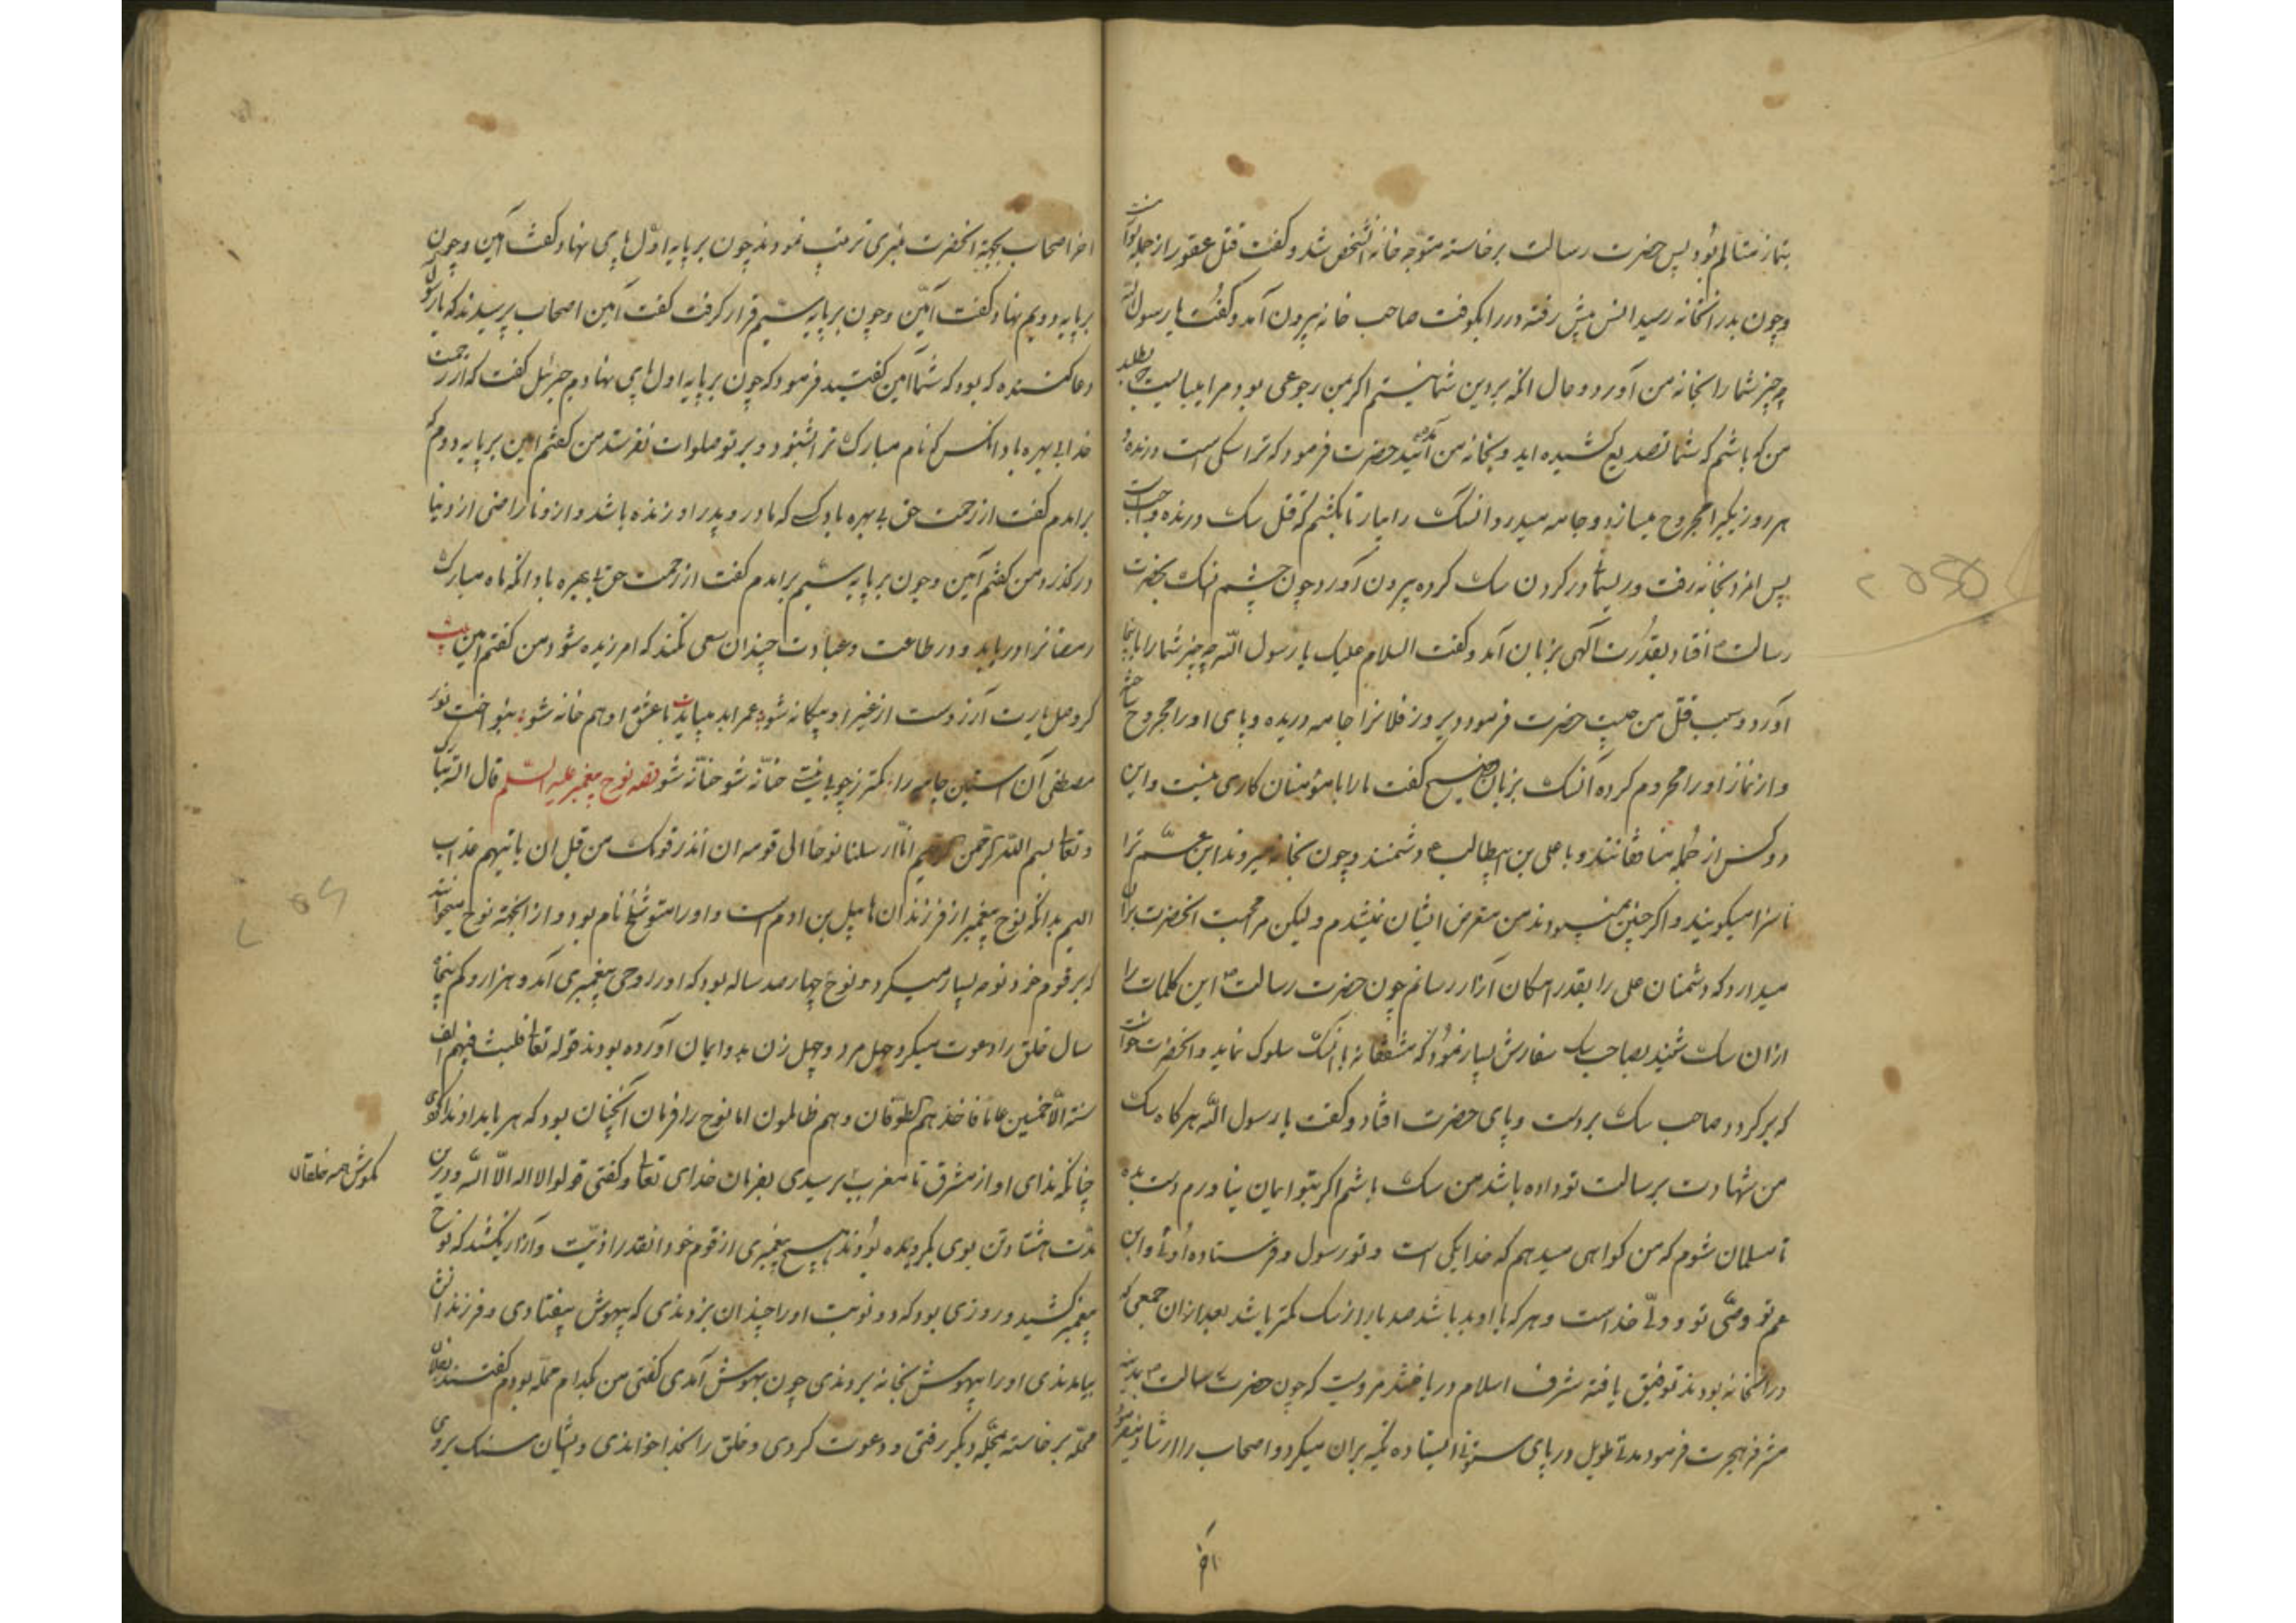 بنماز متالم بود پس حضرت رسالت برخاسته متوجه خانه آنشخص شد و کفت قتل عقور از جمله واجباتست
و چون بدر آنخانه رسید انس پیش رفته در را بکوفت صاحب خانه بیرون آمد و کفت یا رسول الله
چه چیز شما را بخانه من آورد و حال آنکه بر دین شما نیستم اکر بمن رجوعی بود مرا میبایست طلبید
من که باشم که شما تصدیع کشیده اید و بخانه من آمدید حضرت فرمود که ترا سکی است درنده و
هر روز یکیرا مجروح میسازد و جامه میدرد آنسک را بیار تا بکشم که قتل سک درنده واجبست
پس آنمرد بخانه رفت و ریسمان در کردن سک کرده بیرون آورد و چون چشم انسک بحضرت
رسالت افتاد بقدرت آلهی بزبان آمد و کفت السلام علیک یا رسول الله چه چیز شما را باینجا
آورد و سبب قتل من چیست حضرت فرمود دیروز فلانرا جامه دریده و پای او را مجروح ساخته
و از نماز او را محروم کرده آنسک بزبان فصیح کفت مارا با مؤمنان کاری نیست و این
دو کس از جمله منافقانند و با علی بن ابیطالب دشمنند و چون بخانه میروند ابن عم ترا
ناسزا میکویند و اکر چنین نمیبودند من متعرض ایشان نمیشدم ولیکن مر محبت آنحضرت بران
میدارد که دشمنان علی را بقدر امکان آزار رسانم چون حضرت رسالت این کلمات را
ازان سک شنید بصاحب سک سفارش بسیار نمود که مشفقانه با انسک سلوک نماید و آنحضرت خواست
که برکردد صاحب سک بر دست و پای حضرت افتاد و کفت یا رسول الله هرکاه سک
من شهادت برسالت تو داده باشد من سک باشم اکر بتو ایمان نیاورم دست بده
تا مسلمان شوم که من کواهی میدهم که خدا یکی است و تو رسول و فرستاده اوئی و ابن
عم تو وصی تو و ولی خداست و هر که با او بد باشد صد بار از سک کمتر باشد بعد ازان جمعی که
در آنخانه بودند توفیق یافته شرف اسلام دریافتند مرویست که چون حضرت رسالت بمدینه
مشرفه هجرت فرمود مدتی طویل در پای ستونی ایستاده تکیه بران میکرد و اصحاب را ارشاد میفرمود
آخر
آخر اصحاب بجهة آنحضرت منبری ترتیب نمودند چون بر پایه اول پای نهاد کفت آمین و چون
بر پایه دویم نهاد کفت آمین و چون بر پایه سیم قرار کرفت کفت آمین اصحاب پرسیدند که یا رسول الله
دعا کننده که بود که شما آمین کفتید فرمود که چون بر پایه اول پای نهادم جبرئیل کفت که از رحمت
خدا بی بهره باد انکس که نام مبارک ترا شنود و بر تو صلوات نفرستد من کفتم امین بر پایه دوم که
برامدم کفت از رحمت حق بی بهره باد کسی که مادر و پدر او زنده باشد و ازو ناراضی از دنیا
درکذرد من کفتم آمین و چون بر پایه سیم برامدم کفت از رحمت حق بی بهره باد آنکه ماه مبارک
رمضانرا دریابد و در طاعت و عبادت چندان سعی نکند که امرزیده شود من کفتم امین بیت
کر وصل یارت آرزوست از غیر او بیکانه شو عمر ابد میبایدت با عشق او هم خانه شو بنواخت نور
مصطفی آن استن چوبینه را کمتر ز چوبی نیستی حنانه شو حنانه شو قصه نوح پیغمبر علیه السلم قال الله تبارک
و تعالی بسم الله الرحمن الرحیم انا ارسلنا نوحا الی قومه ان انذر قومک من قبل ان یاتیهم عذاب
الیم بدانکه نوح پیغمبر از فرزندان هابیل بن ادم است و او را متوشلخ نام بود و از انجهة نوح میخوانند
که بر قوم خود نوحه بسیار میکرد و نوح چهار صد ساله بود که او را وحی پیغمبری آمد و هزار و کم پنجاه
سال خلق را دعوت میکرد چهل مرد و چهل زن بدو ایمان آورده بودند قوله تعالی فلبث فیهم الف
سنة الا خمسین عاما فاخذهم الطوفان و هم ظالمون اما نوح را فرمان آنچنان بود که هر بامداد ندا کردی
چنانکه ندای او از مشرق تا مغرب برسیدی بفرمان خدای تعالی و کفتی قولوا لا اله الا الله و درین
بکوش همه خلقان
مدت هشتاد تن بوی بکرویده بودند هیچ پیغمبری از قوم خود انقدر اذیت و آزار نکشید که نوح
پیغمبر کشید و روزی بود که دو نوبت او را چندان بزدندی که بیهوش بیفتادی و فرزندانش
بیامدندی او را بیهوش بخانه بردندی چون بهوش آمدی کفتی من بکدام محله بودم کفتندی بفلان
محله برخاسته بمحله دیکر رفتی و دعوت کردی و خلق را بخدا خواندی و ایشان سنک بروی